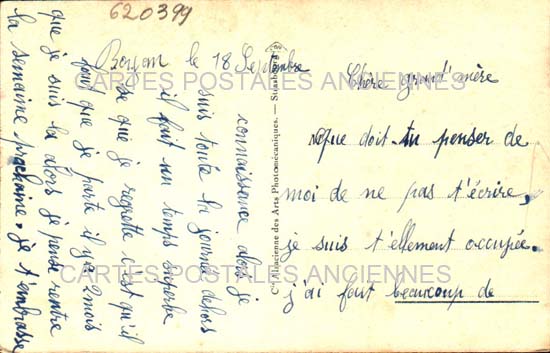 620399
Bergem le 18 Septembre
Chère grand'mère
que doit-tu penser de
moi de ne pas t'écrire,
je suis t'ellement occupée.
j'ai fait beaucoup de
connaissance alors je
suis toute la journée dehors
il fait un temps superbe
se que je regrette c'est qu'il
faut que je parte il y a 2 mois
que je suis la alors je pense rentre
la semaine prochaine. je t'embrasse
Cie Alsacienne des Arts Photomécaniques. — Strasbourg
CARTES POSTALES ANCIENNES
CARTES POSTALES ANCIENNES